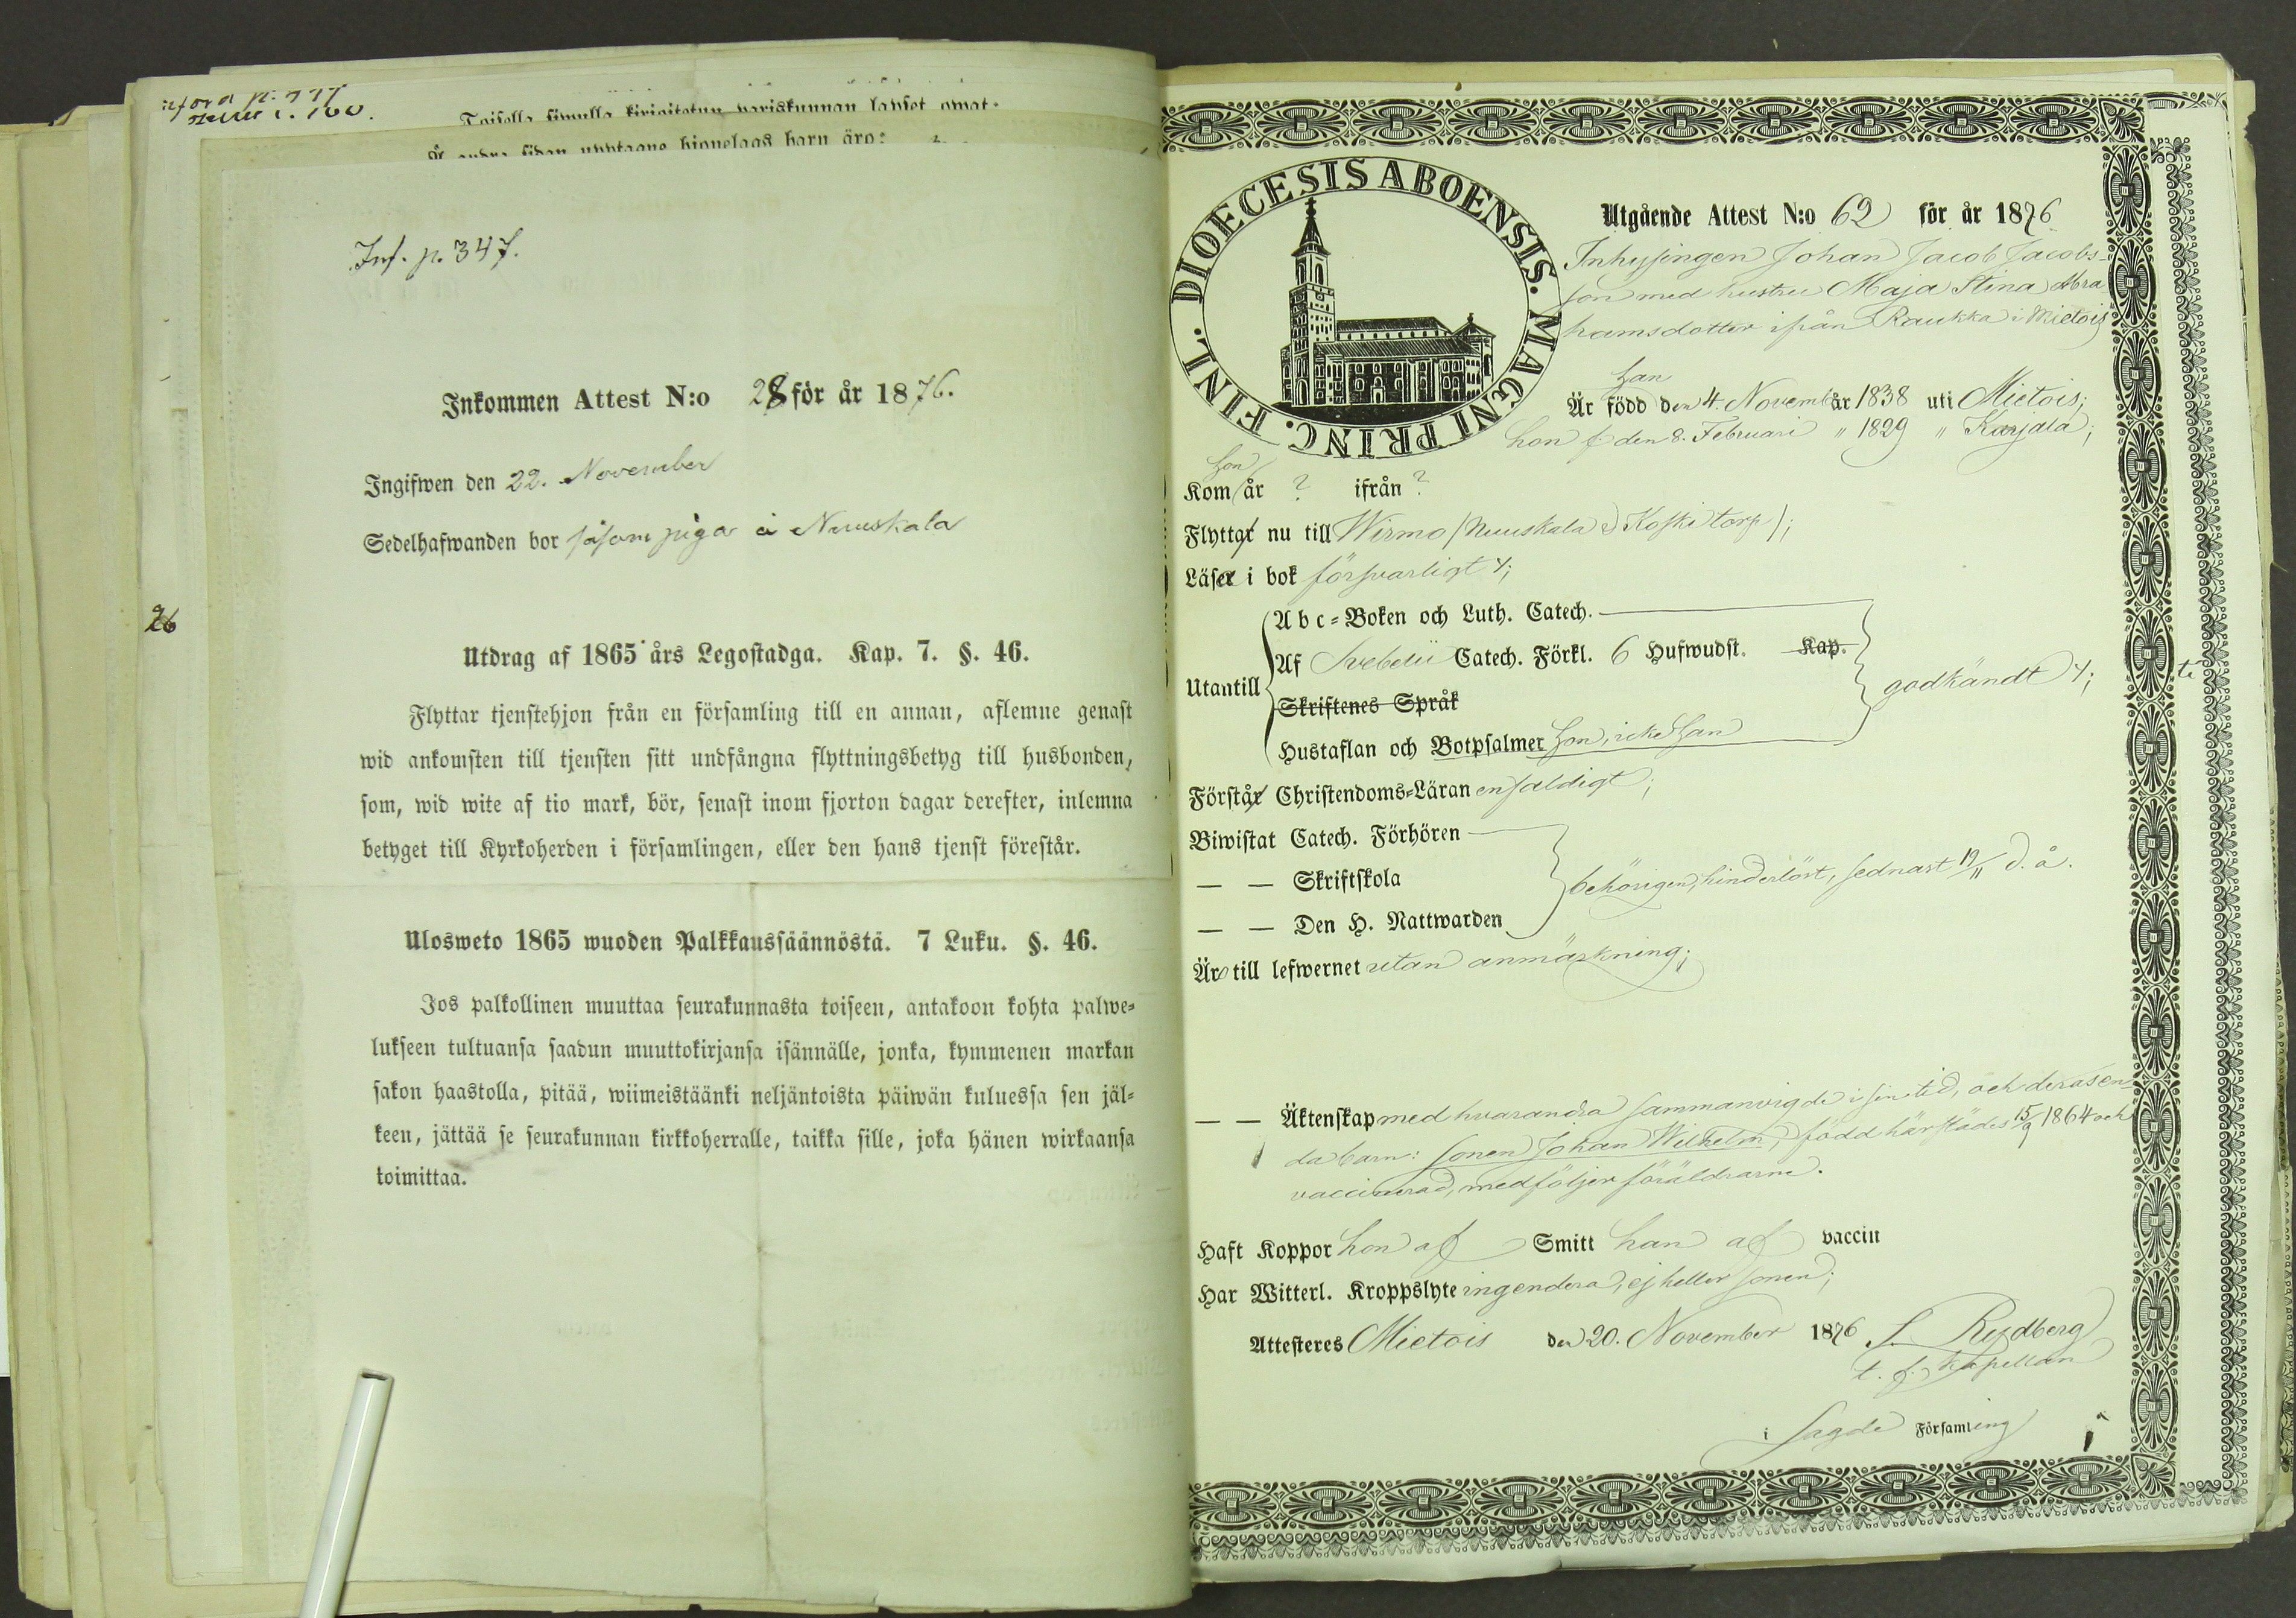 Toisella siwulla kirjoitetun pariskunnan lapset owat:
Å andra sidan upptagne hjonelags barn äro:
Inf. p. 347.
Inkommen Attest N:o 28 för år 1876.
Ingifwen den 22. November
Sedelhafwanden bor såsom piga å Nuuskala
26
Utdrag af 1865 års Legostadga. Kap. 7. §. 46.
Flyttar tjenstehjon från en församling till en annan, aflemne genast
wid ankomsten till tjensten sitt undfångna flyttningsbetyg till husbonden,
som, wid wite af tio mark, bör, senast inom fjorton dagar derefter, inlemna
betyget till Kyrkoherden i församlingen, eller den hans tjenst förestår.
Ulosweto 1865 wuoden Palkkaussäännöstä. 7 Luku. §. 46.
Jos palkollinen muuttaa seurakunnasta toiseen, antakoon kohta palwe-
lukseen tultuansa saadun muuttokirjansa isännälle, jonka, kymmenen markan
sakon haastolla, pitää, wiimeistäänki neljäntoista päiwän kuluessa sen jäl-
keen, jättää se seurakunnan kirkkoherralle, taikka sille, joka hänen wirkaansa
toimittaa.
DIOECESIS ABOENSIS. MAGNI PRINC. FINL.
Utgående Attest N:o 62 för år 1876
Inhysingen Johan Jacob Jacobs-
son med hustru Maja Stina Abra
hamsdotter ifrån Raukka i Mietois
han
Är född den 4. Novemb år 1838 uti Mietois;
hon f. den 8. Februari " 1829 " Karjala;
hon
Kom år ? ifrån ?
Flyttar nu till Wirmo /Nuuskala Koski torp/;
Läser i bok försvarligt;
Abc-Boken och Luth. Catech.
Af Svebelii Catech. Förkl. 6 Hufwudst. Kap.
Utantill
godkändt
Skriftenes Språk
Hustaflan och Botpsalmer hon, icke han
Förstår Christendoms-Läran enfaldigt;
Biwistat Catech. Förhören
— — Skriftskola
behörigen, hinderlöst, sednast 19/11 d. å.
— — Den H. Nattwarden
Är till lefwernet utan anmärkning;
— — Äktenskap med hvarandra sammanvigde i sin tid, och deras en-
da barn: sonen Johan Wilhelm, född härstädes 15/9 1864 och
vaccinerad, medföljer föräldrarne.
Haft Koppor hon af Smitt han af vaccin
Har Witterl. Kroppslyte ingendera, ej heller sonen;
Attesteres Mietois den 20. November 1876 Rydberg
t. f. Kapellan
i sagde Församling